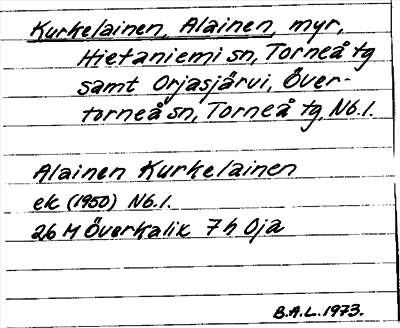 Kurkelainen, Alainen, myr,
Hietaniemi sn, Torneå tg
samt Orjasjärvi, Över-
torneå sn, Torneå tg, Nb.l.
Alainen Kurkelainen
ek (1950) Nb.l.
26 M Överkalix 7 h Oja
B.A.L. 1973.